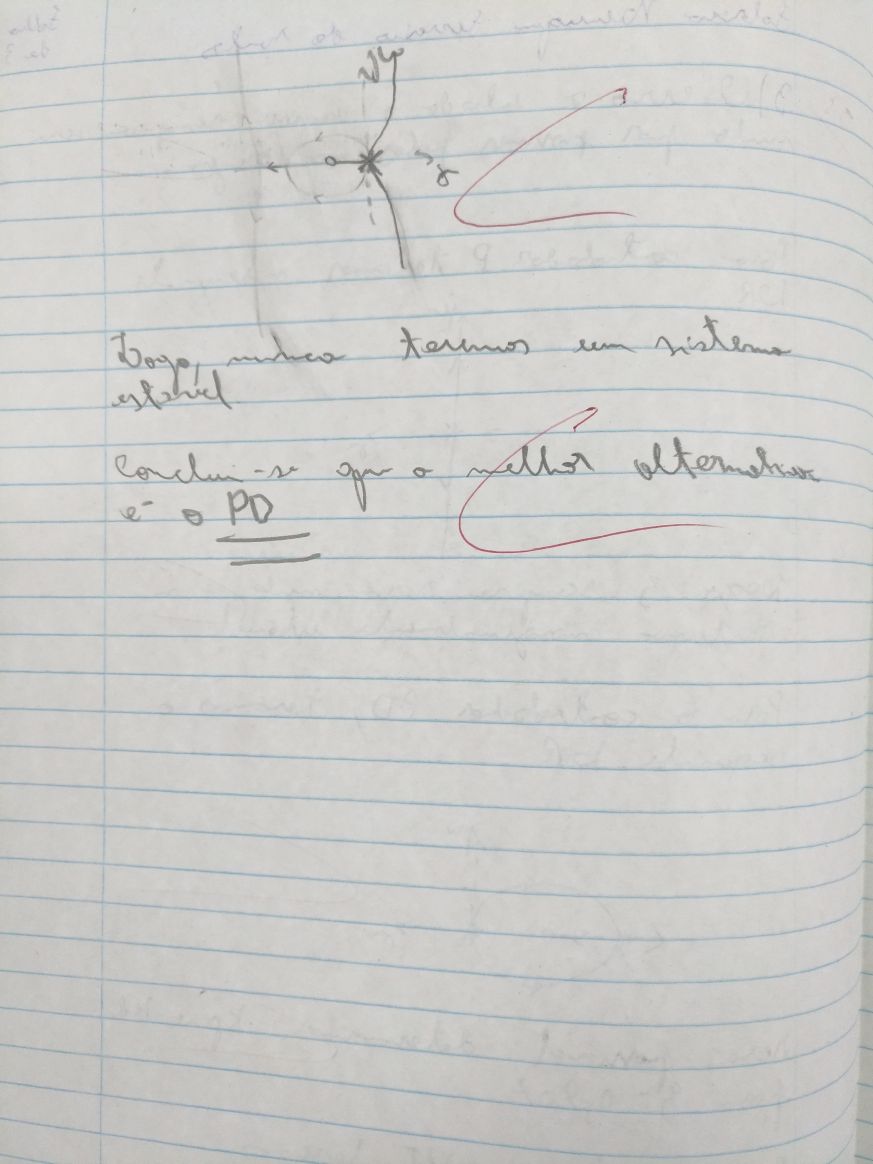 Logo, nunca teremos um sistema
estável
Conclui-se que a melhor alternativa
é o PD